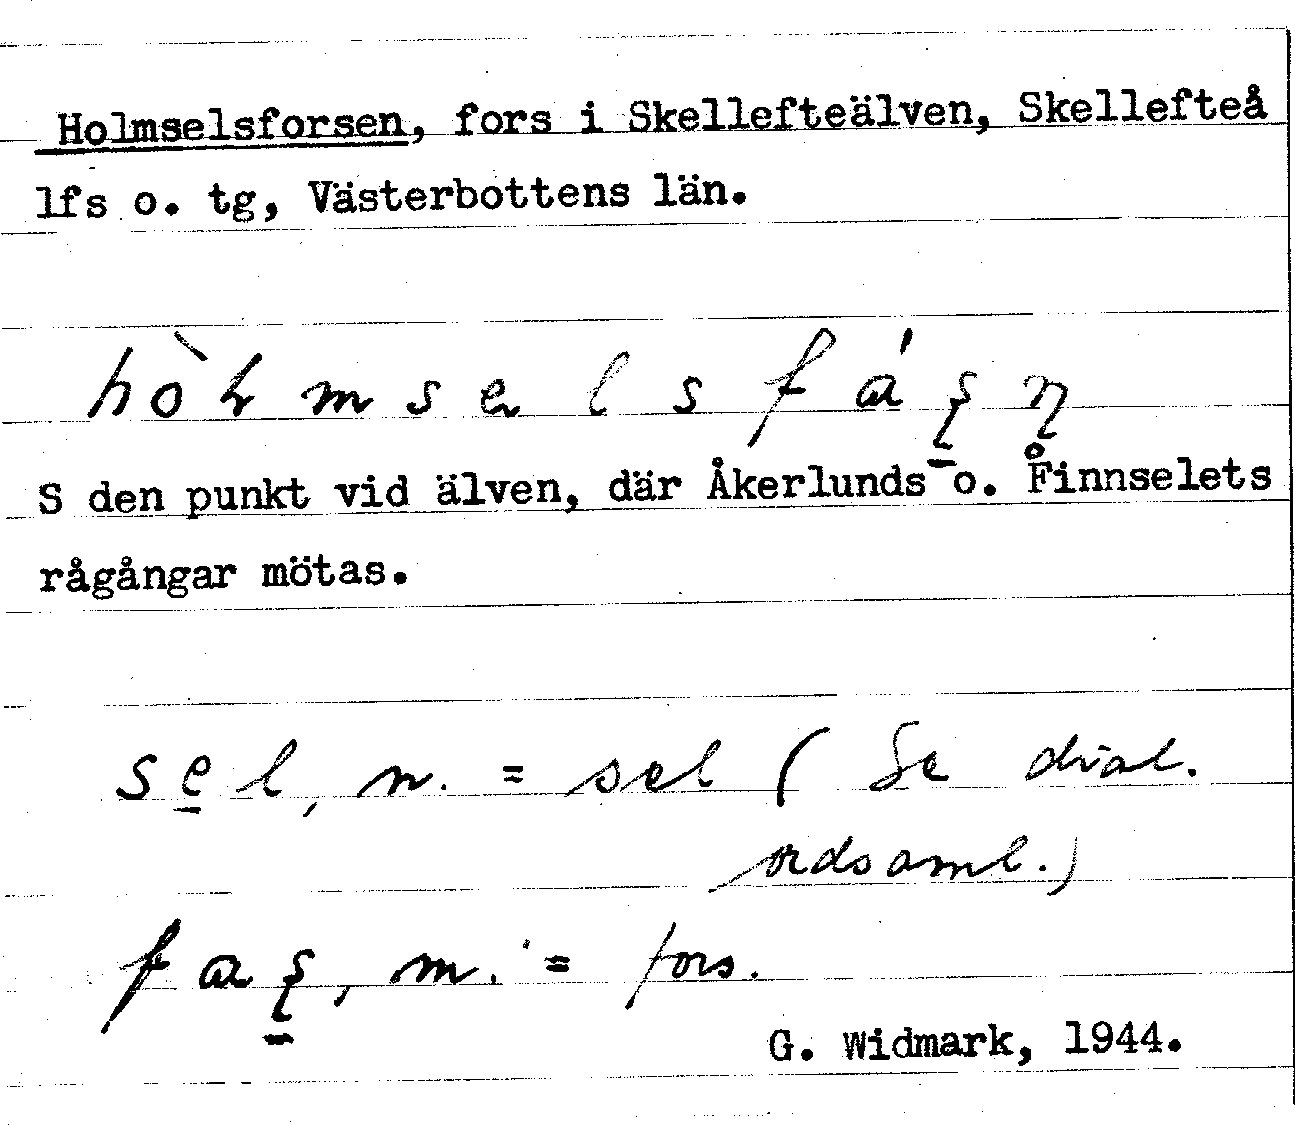 Holmselsforsen, fors i Skellefteälven, Skellefteå
lfs o. tg, Västerbottens län.
hòɫmselsfáʂ̱ɳ
S den punkt vid älven, där Åkerlunds- o. Finnselets
rågångar mötas.
se̱l, n. = sel (Se dial.
ordsaml.)
faʂ̱, m. = fors.
G. Widmark, 1944.